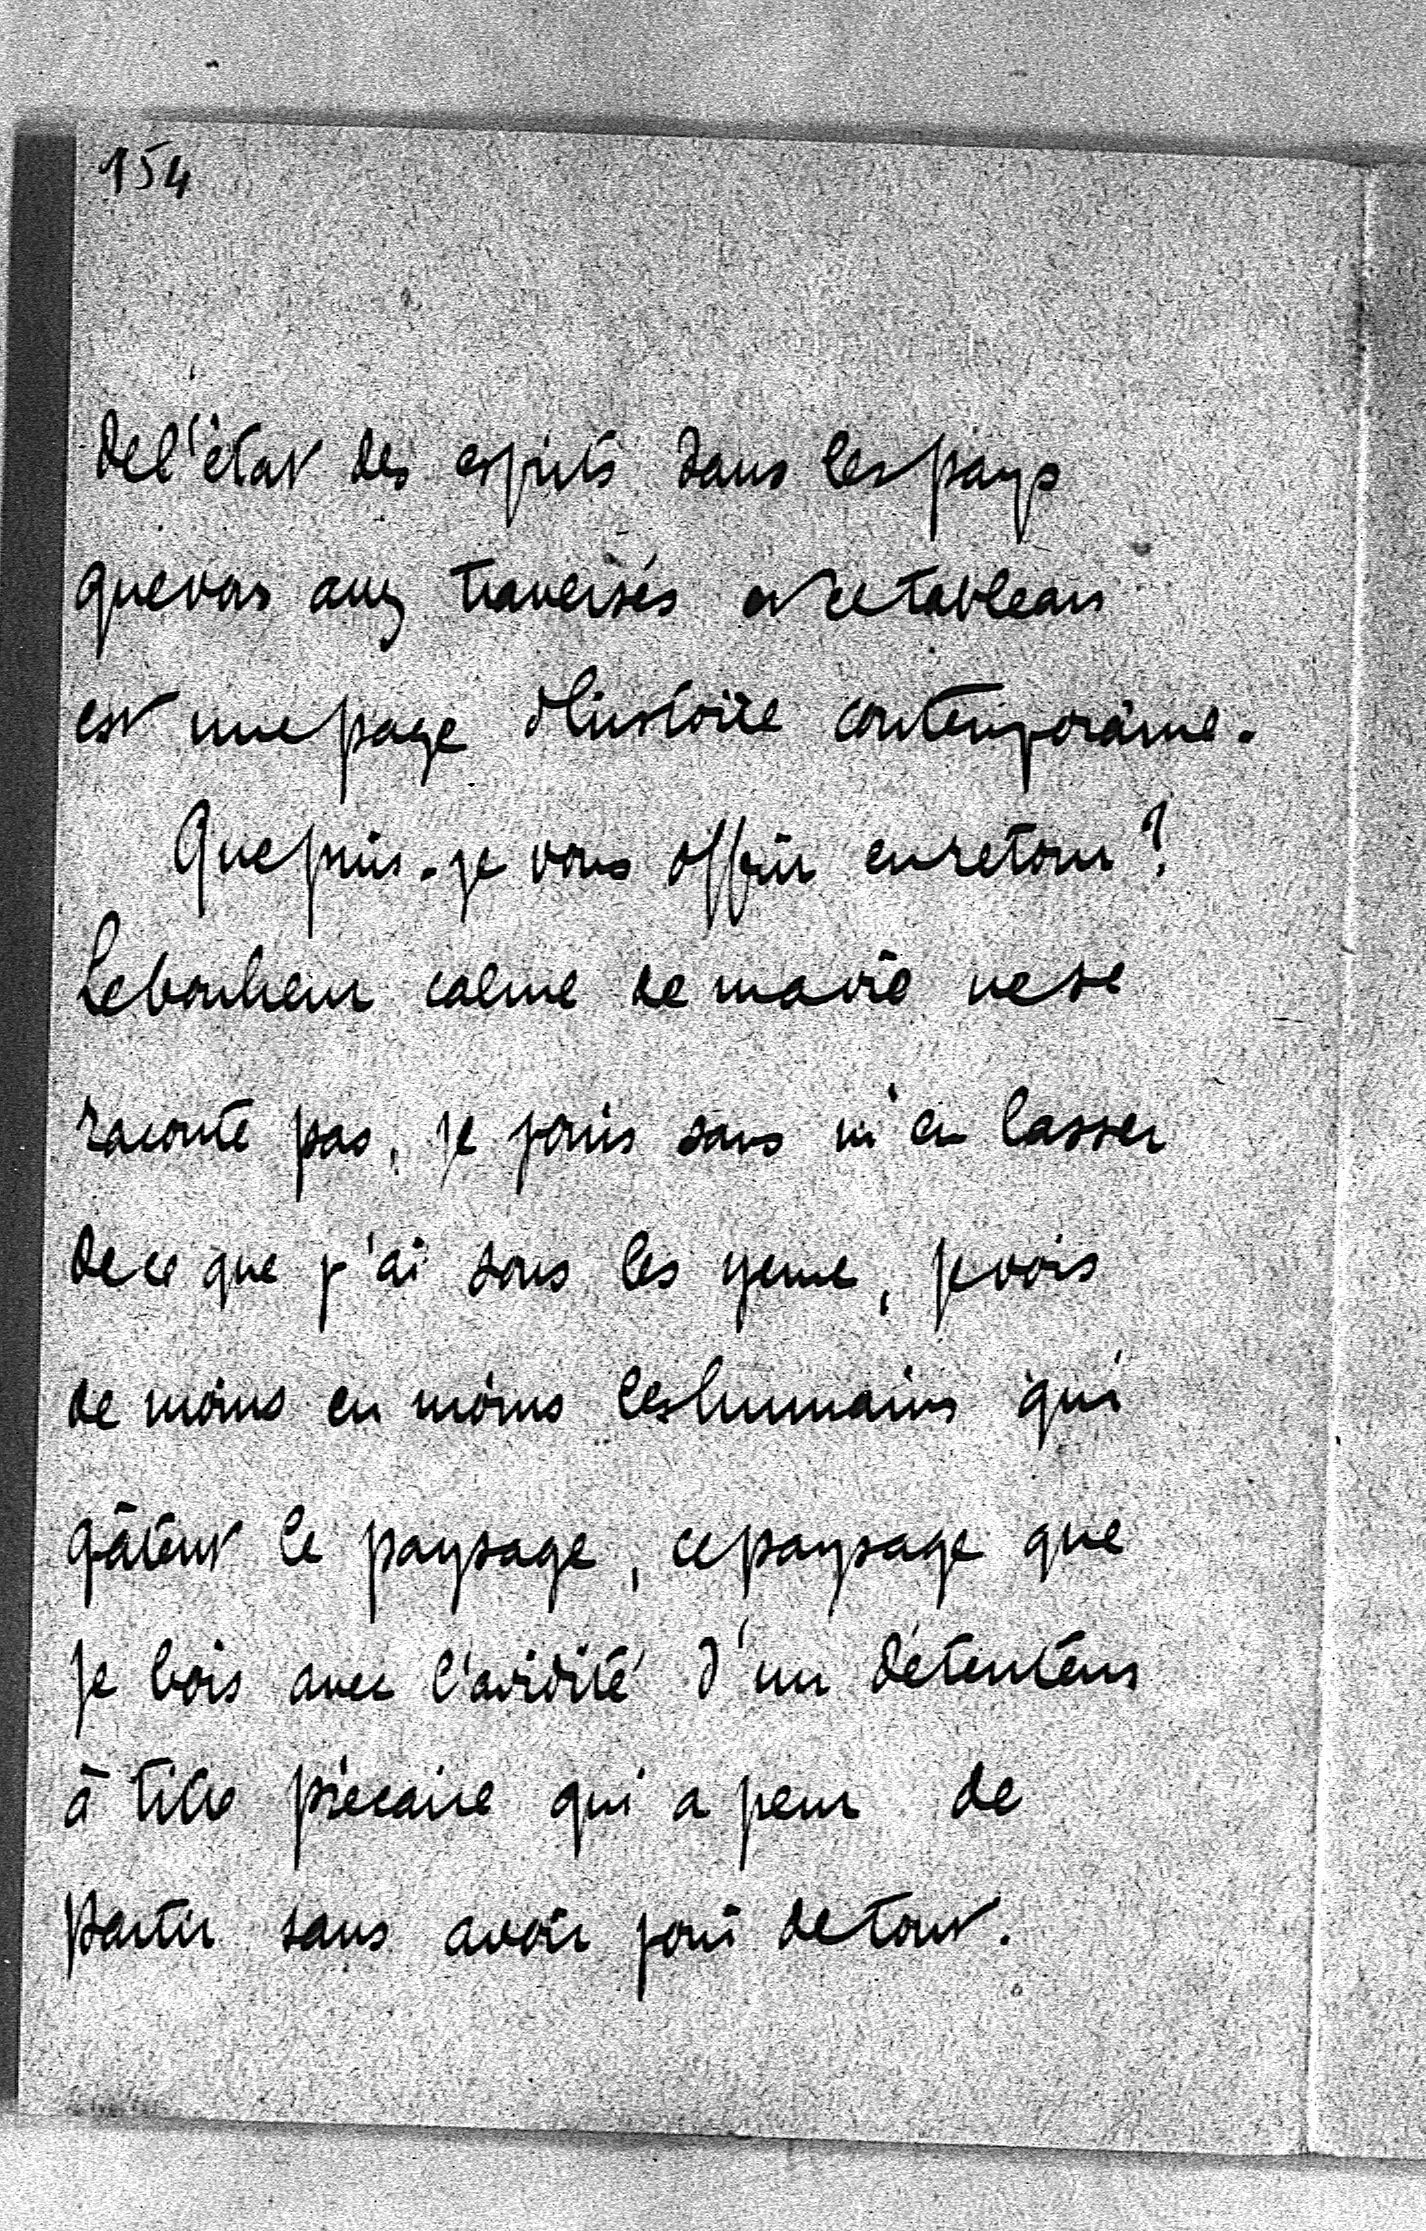 154
de l'état des esprits dans les pays
que vous avez traversés et ce tableau
est une page d'histoire contemporaine.
Que puis-je vous offrir en retour ?
Le bonheur calme de ma vie ne se
raconte pas, je jouis sans m'en lasser
de ce que j'ai sous les yeux, je vois
de moins en moins les humains qui
gâtent le paysage, ce paysage que
je bois avec l'avidité d'un détenteur
à titre précaire qui a peur de
partir sans avoir joui de tout.